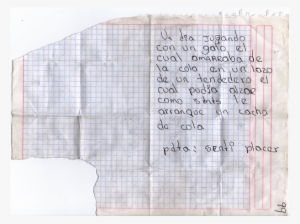 Un dia jugando
con un gato, el
cual amarraba de
la cola en un lazo
de un tendedero el
cual podia alzar
como le
arranque un cacho
de cola
pdta: senti placer